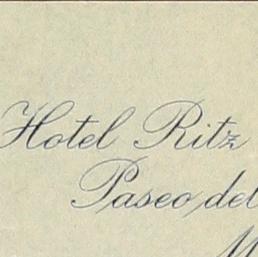 Hotel Ritz
Paseo del